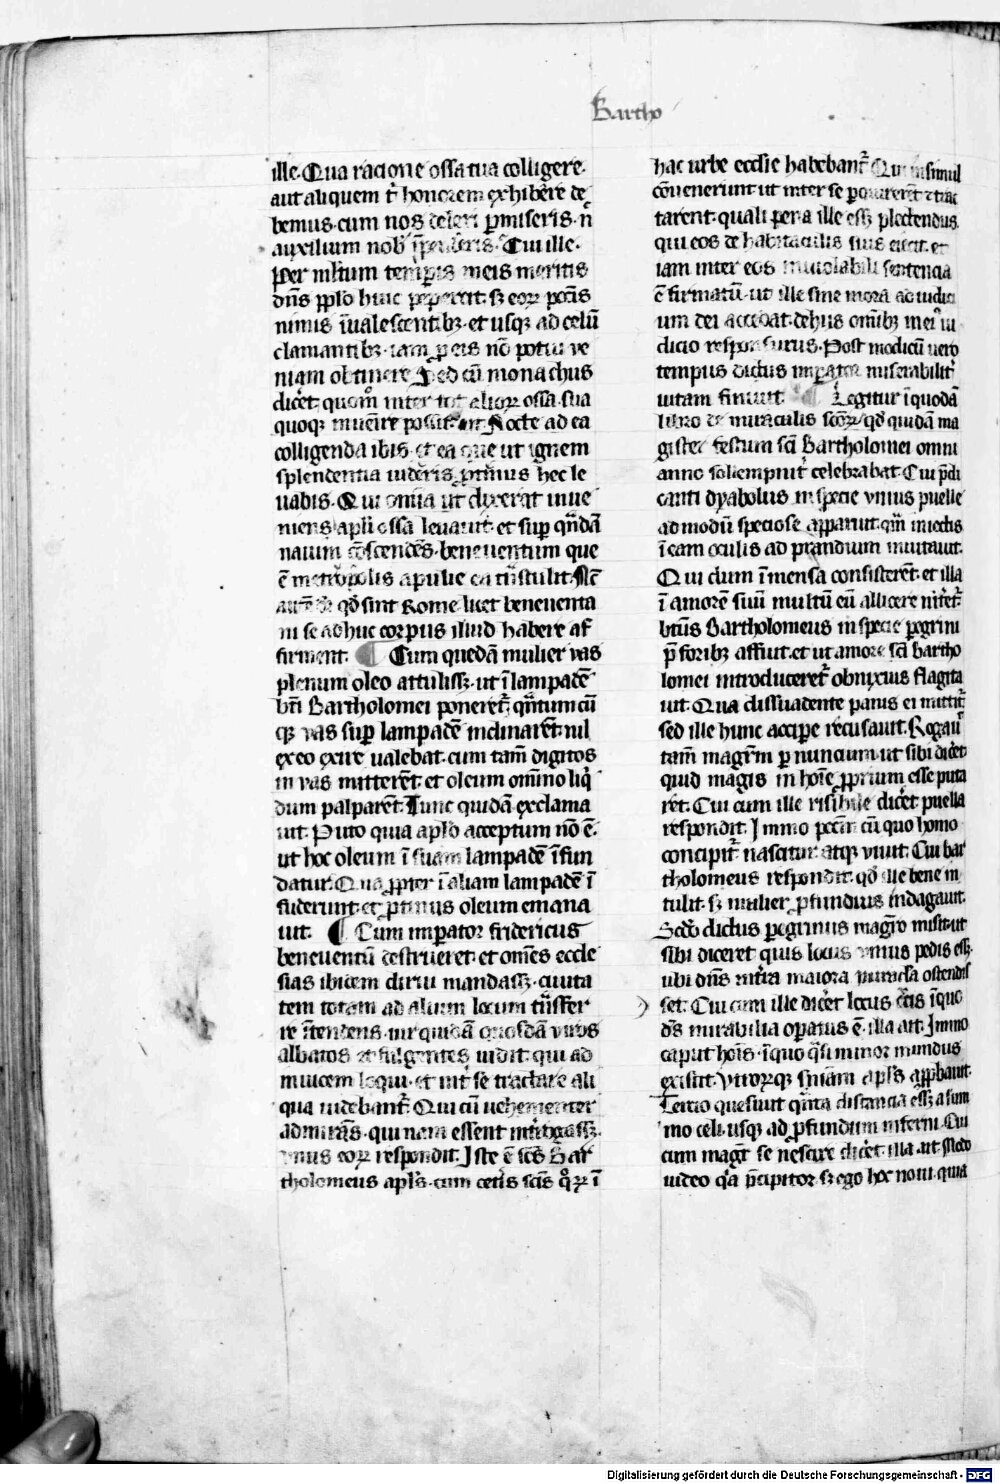 Bartho
ille. Qua racione ossa tua colligere.
aut aliquem t̾ honorem exhibere de
bemus. cum nos deleri ꝑmiseris. n̄
auxilium nob̾ īpenderis. Cui ille.
Per ml̾tum tempis meis meritis
dn̄s pplo huic pepercit. sꝫ eoꝝ pctīs
nimis īualescentibꝫ. et usqꝫ ad celū
clamantibꝫ. iam ꝓ eis nō potui ve
niam obtinere Sed cū monachus
dicēt. quom̄ inter tot alioꝝ ossa sua
quoqꝫ inuēire possit. ait Nocte ad ea
colligenda ibis. et ea que ut ignem
splendentia uideris ꝓtinus hec le
uabis. Qui omīa ut dixerat inue
niens apli ossa leuauit. et suꝑ qn̄dā
nauim cōscendēs. beneuentum que
ē metropolis apulie ea tn̄stulit. Nc̄
qd̾ sint Rome. licet beneuenta
ni se adhuc corpus illud habere af
firment. ¶ Cum quedā mulier vas
plenum oleo attulissꝫ. ut ī lampadē
bt̄i Bartholomei poneret̾. qn̄tumcū
qꝫ vas suꝑ lampadē inclinarēt. nil
ex eo exire ualebat. cum tam̄ digitos
in vas mitterēt. et oleum om̄ino liq̾
dum palparēt. Tunc quidā exclama
uit. Puto quia aplo acceptum nō ē.
ut hoc oleum ī suam lampadē īfun
datur. Qua ꝓpter ī aliam lampadē ī
fuderunt. et ꝓtinus oleum emana
uit. ¶ Cum imꝑator fridericus
beneuentū destrueret. et om̄es eccle
sias ibidem dirui mandassꝫ. ciuita
tem totam ad alium locum tn̄sfer
re īntendens. uir quidā quosdā viros
albatos et fulgentes uidit. qui ad
inuicem loqui. et int̾ se tractare ali
qua uidebant̾. Qui cū uehementer
admirās. qui nam essent int̾rogassꝫ.
vnus eoꝝ respondit. Iste ē scs̄ Bar
tholomeus apls̄. cum cet̾is scīs q̾oꝝ ī
hac urbe ecclīe habebant̾. Qui insimul
cōuenerunt ut inter se et trac
tarent. quali pena ille essꝫ plectendus.
qui eos de habitaculis suis eiecit. et
iam inter eos inuiolabili sentencia
ē firmatū. ut ille sine mora ad iudici
um dei accedat. de hiis om̄ibꝫ
dicio responsurus. Post modicū uero
tempus dictus imꝑator miserabilit̾
uitam finiuit. ¶ Legitur ī quodā
libro de miraculis scōꝝ. qd̾ quidam ma
gister festum scī Bartholomei omni
anno sollempnit̾ celebrabat. Cui p̄di
canti dyabolus in specie vnius puelle
admodū speciose apparuit. qui iniectis
ī eam oculis ad prandium inuitauit.
Qui dum ī mensa consisterēt. et illa
ī amorē suū multū eū allicere nit̾et̾.
bt̄us Bartholomeus in specie ꝑegrini
p̄ foribꝫ affuit. et ut amore scī Bartho
lomei introduceret̾ obnixius flagita
uit. Qua dissuadente panis ei mittit̾
sed ille hunc acciꝑe recusauit. Rogau̾
tam̄ magrm̄ ꝑ nuncium. ut sibi dic̾et
quid magis in hoīe ꝓprium esse puta
rēt. Cui cum ille risibile dic̾et. puella
respondit. Immo pctm̄ cū quo homo
concipit̾. nascitur. atqꝫ viuit. Cui bar
tholomeus respondit. qd̾ ille bene in
tulit. sꝫ mulier ꝓfundius indagauit.
Scd̾o dictus ꝑegrinus magr̄o misit. ut
sibi diceret quis locus vnius pedis essꝫ
ubi dn̄s int̾ra maiora miracula ostendis
set. Cui cum ille dic̾et locus cruc̄is ī quo
ds̄ mirabilia oꝑatus ē. illa ait. Immo
caput hoīs. ī quo q̾si minor mundus
existit. vtroꝝqꝫ sniam apls̄ apꝓbauit.
Tertio quesiuit qn̄ta distancia essꝫ a sum
mo celi. usqꝫ ad ꝓfundum inferni. Cui
cum magr̄ se nescire dic̾et. illa ait. Modo
uideo q̾a p̄cipitor. sꝫ ego hoc noui. quia